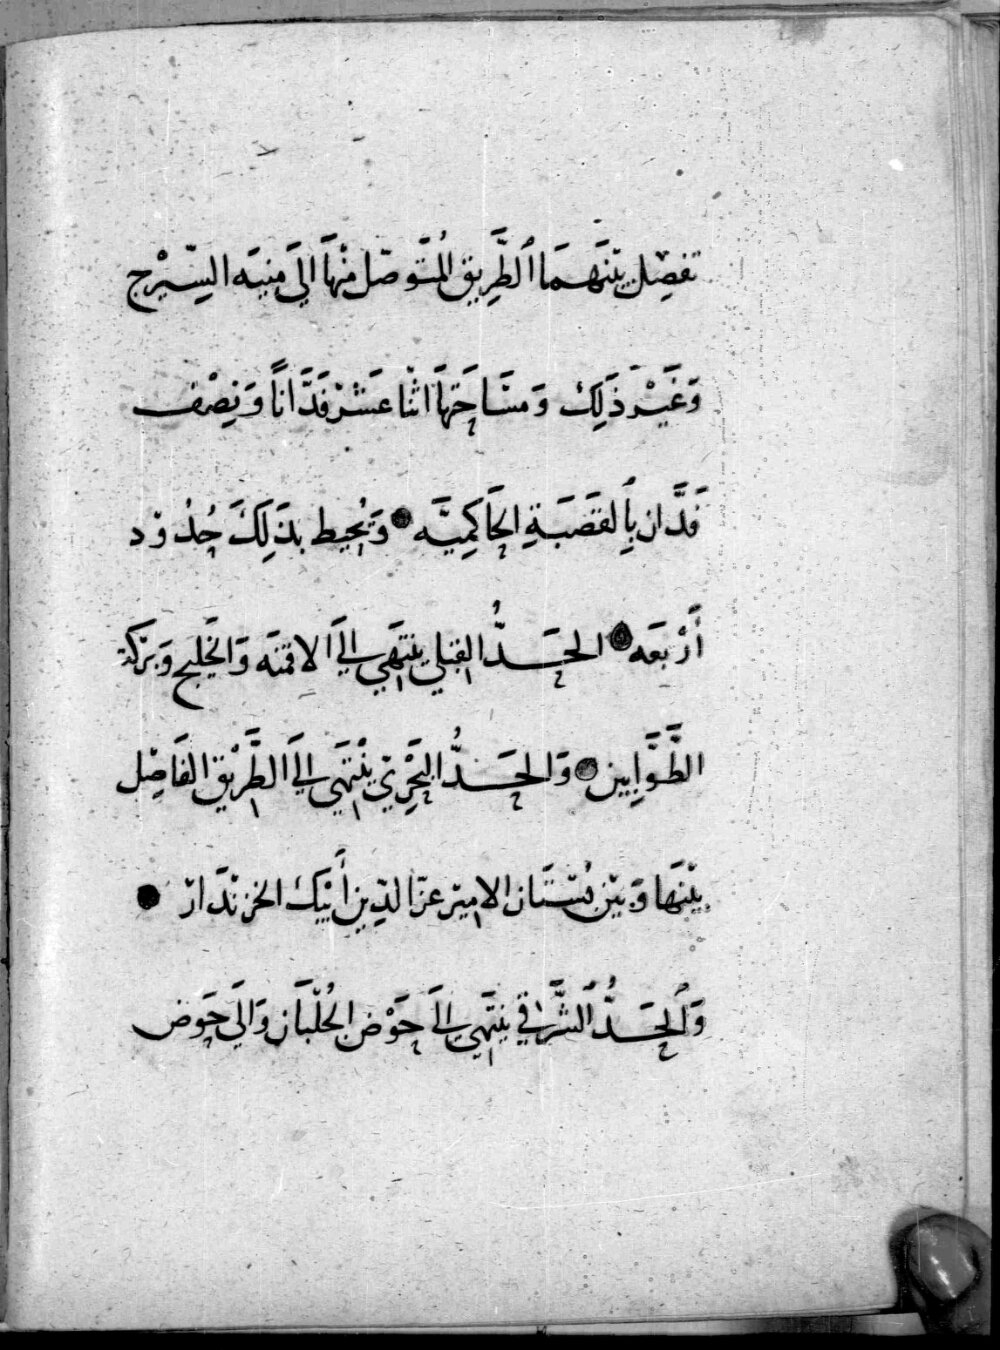 تفصِل بيْنَهمَا الطَّرِيق المُتَوصّل مِنْهَا اِلىَ مِنيَه السِّيرْج
وَغَيْر ذَلِكَ وَمسَاحَتهَا اثْنا عَشَرْ فَدَّانًا وَنِصْف
فَدَّان بِالقَصَبَةِ الحَاكِميَّه ● وَيُحِيط بذَلِكَ حُدُوْد
أَرْبعَه ● الحَدُّ القبْلي ينتَهَى اِلىَ الاقمنَه وَالخَليج وَبرْكَة
الطَّوَّابِين ● وَالحَدُّ البَحْرِيّ ينْتَهَى اِلىَ الطَّرِيْق الفَاصِل
بيْنهَا وَبيْن بُسْتَان الاميْر عزّ الدِّين أَيْبَك الخَزنْدَارْ ●
وَالحَدُّ الشَّرقي ينتَهَى اِلىَ حَوْض الجُلْبَان وَاِلىَ حَوض